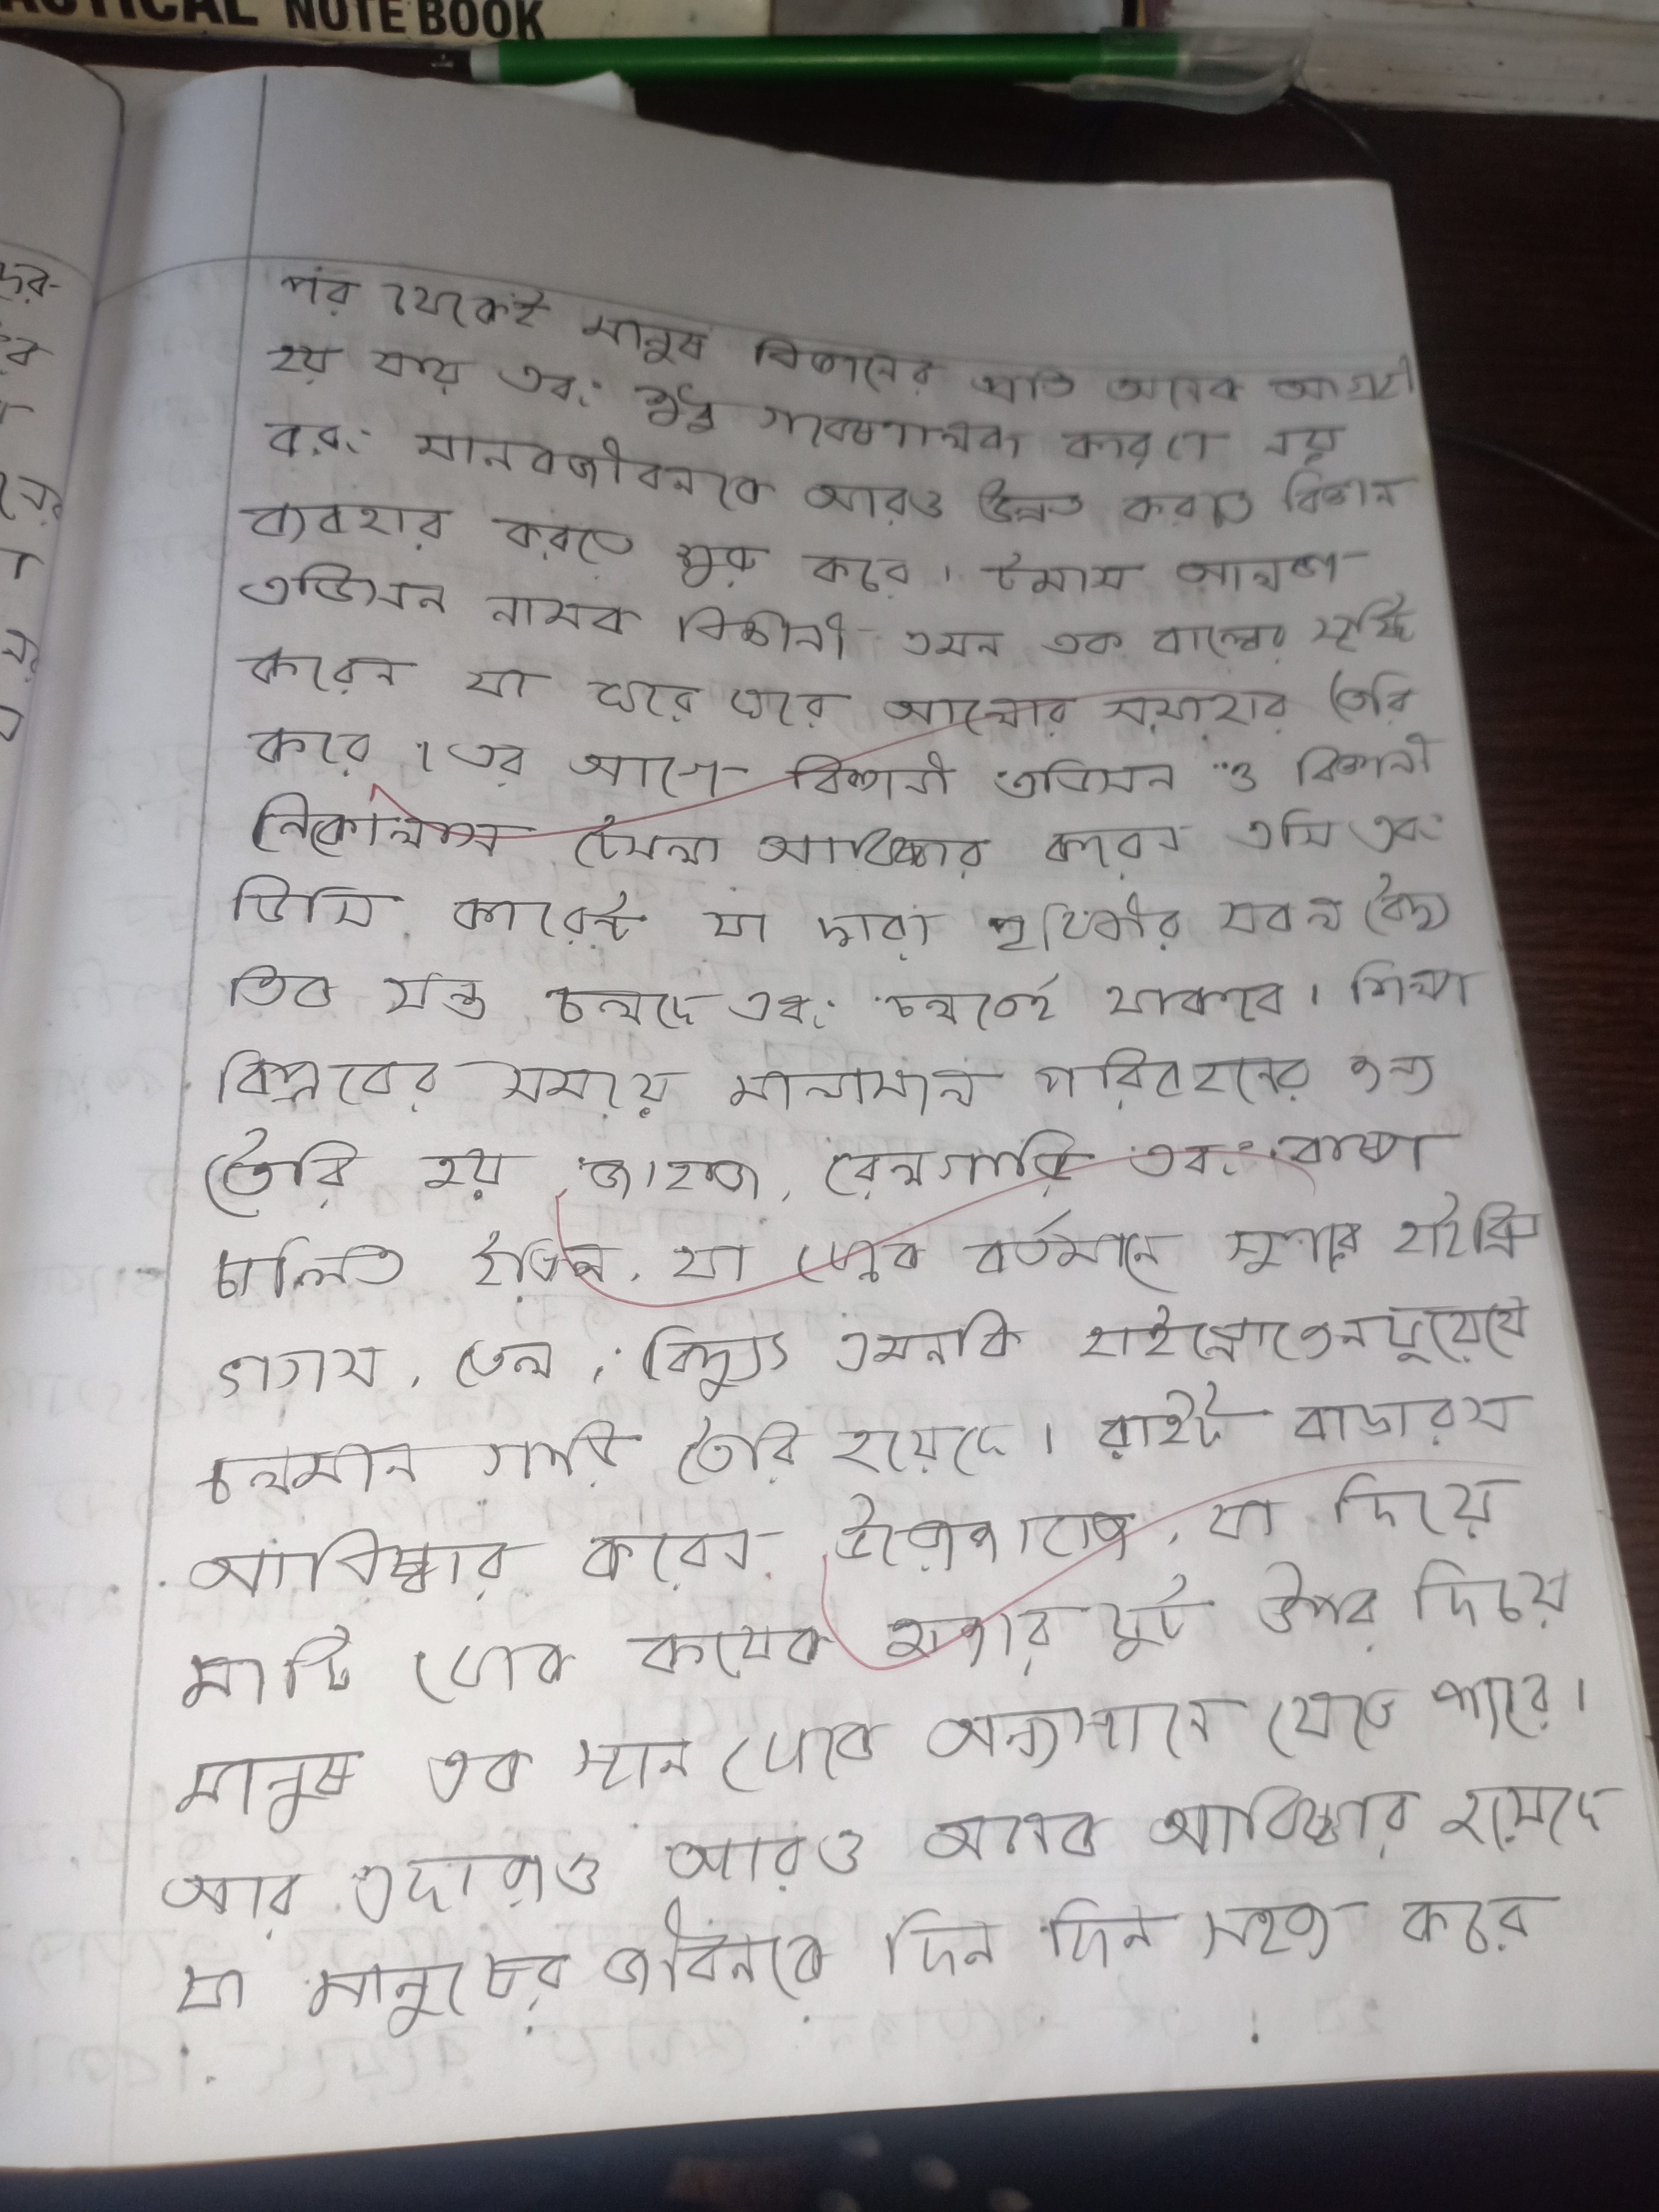 ACTICAL NOTE BOOK
পর থেকেই মানুষ বিজ্ঞানের প্রতি অনেক আগ্রহী
হয় যায় এবং শুধু গবেষণালব্ধ কারণে নয়
বরং মানবজীবনকে আরও উন্নত করতে বিজ্ঞান
ব্যবহার করতে শুরু করে। টমাস আলভা
এডিসন নামক বিজ্ঞানী এমন এক বাল্বের সৃষ্টি
করেন যা ঘরে ঘরে আলোর সমাহার তৈরি
করে। এর আগে বিজ্ঞানী এডিসন ও বিজ্ঞানী
নিকোলাস টেসলা আবিষ্কার করেন এসি এবং
ডিসি কারেন্ট যা দ্বারা পৃথিবীর সকল বৈদ্যু
তিক যন্ত্র চলছে এবং চলতেই থাকবে। শিল্প
বিপ্লবের সময়ে মালামাল পরিবহনের জন্য
তৈরি হয় জাহাজ, রেলগাড়ি এবং বাষ্প
চালিত ইঞ্জিন, যা থেকে বর্তমানে সুপার হাইব্রিড
গ্যাস, তেল, বিদ্যুৎ এমনকি হাইড্রোজেন ফুয়েলে
চলমান গাড়ি তৈরি হয়েছে। রাইট ব্রাদারস
আবিষ্কার করেন উড়োজাহাজ, যা দিয়ে
মাটি থেকে কয়েক হাজার ফুট উপর দিয়ে
মানুষ এক স্থান থেকে অন্যস্থানে যেতে পারে।
আর এছাড়াও আরও অনেক আবিষ্কার হয়েছে
যা মানুষের জীবনকে দিন দিন সহজ করে